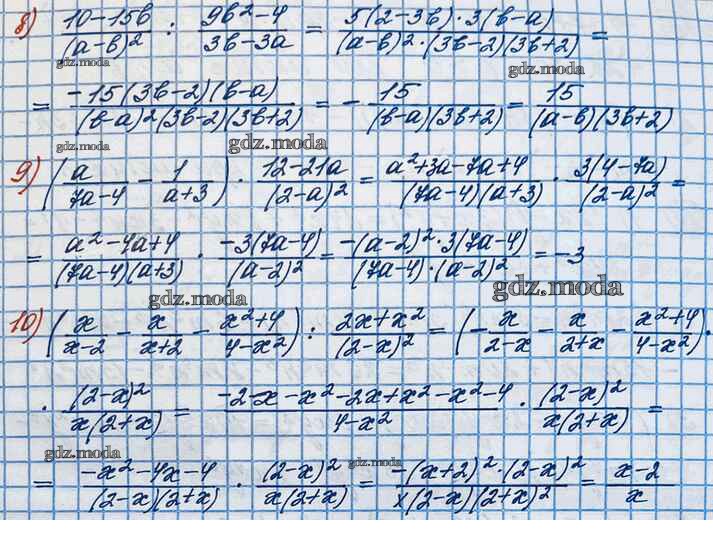 8) (10-15b)/(a-b)² : (9b²-4)/(3b-3a) = (5(2-3b)·3(b-a))/((a-b)²·(3b-2)(3b+2)) =
gdz.moda
= (-15(3b-2)(b-a))/((b-a)²(3b-2)(3b+2)) = - 15/((b-a)(3b+2)) = 15/((a-b)(3b+2))
gdz.moda
gdz.moda
9) (a/(7a-4) - 1/(a+3)) · (12-21a)/(2-a)² = (a²+3a-7a+4)/((7a-4)(a+3)) · (3(4-7a))/(2-a)² =
= (a²-4a+4)/((7a-4)(a+3)) · (-3(7a-4))/(a-2)² = (-(a-2)²·3(7a-4))/((7a-4)·(a-2)²) = -3
gdz.moda
gdz.moda
10) (x/(x-2) - x/(x+2) - (x²+4)/(4-x²)) : (2x+x²)/(2-x)² = (-x/(2-x) - x/(2+x) - (x²+4)/(4-x²)) ·
· (2-x)²/(x(2+x)) = (-2-x-x²-2x+x²-x²-4)/(4-x²) · (2-x)²/(x(2+x)) =
gdz.moda
gdz.moda
= (-x²-4x-4)/((2-x)(2+x)) · (2-x)²/(x(2+x)) = (-(x+2)²·(2-x)²)/(x(2-x)(2+x)²) = (x-2)/x